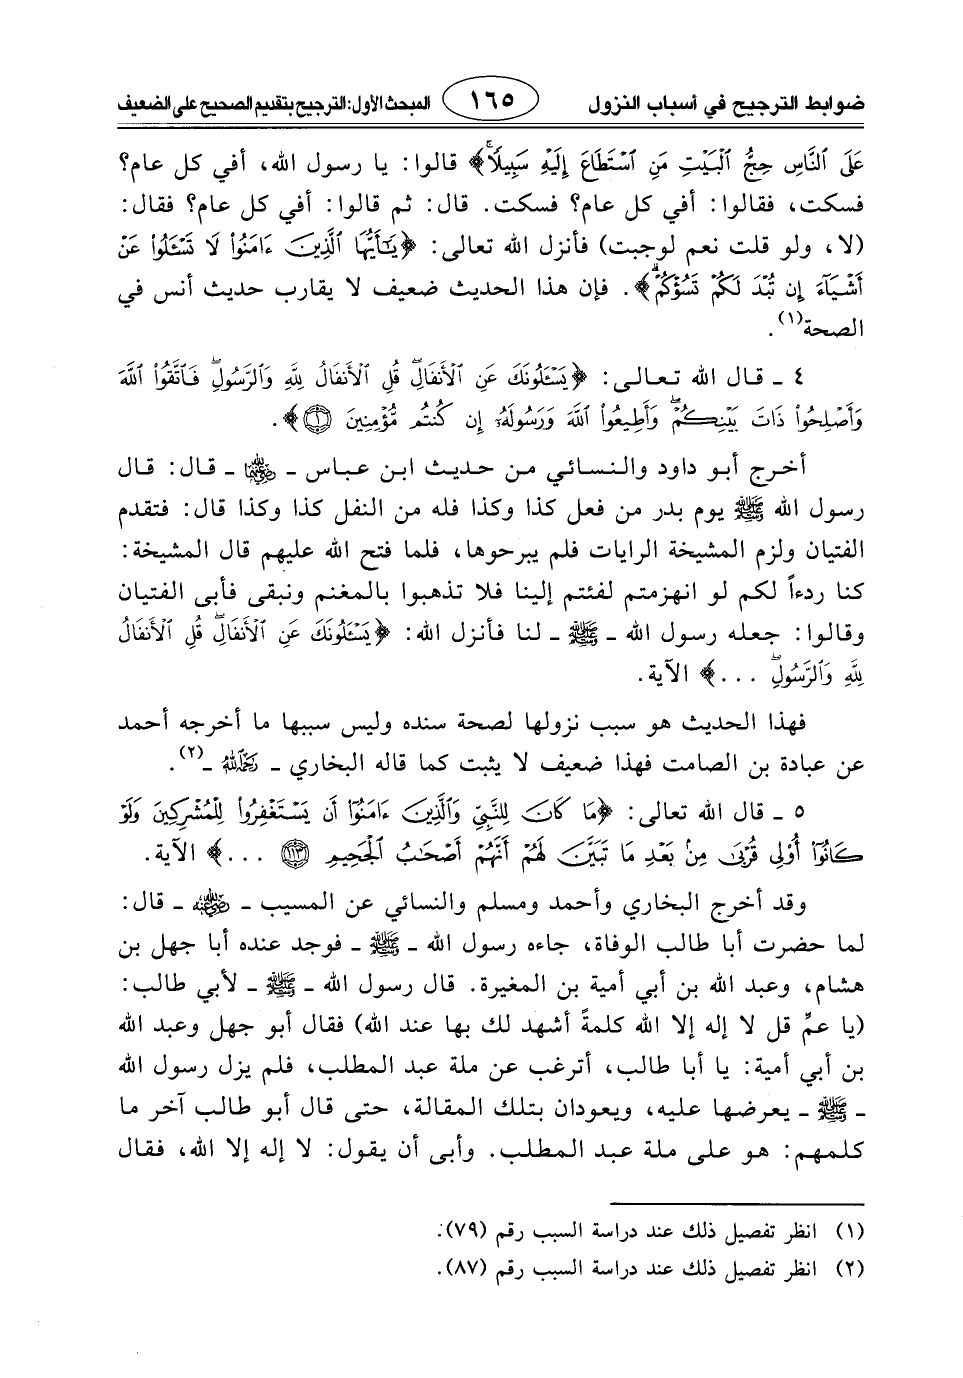 ضوابط الترجيح في أسباب النزول ١٦٥ المبحث الأول: الترجيح بتقديم الصحيح على الضعيف
عَلَى ٱلنَّاسِ حِجُّ ٱلْبَيْتِ مَنِ ٱسْتَطَاعَ إِلَيْهِ سَبِيلًاۚ﴾ قالوا: يا رسول الله، أفي كل عام؟
فسكت، فقالوا: أفي كل عام؟ فسكت. قال: ثم قالوا: أفي كل عام؟ فقال:
(لا، ولو قلت نعم لوجبت) فأنزل الله تعالى: ﴿يَٰٓأَيُّهَا ٱلَّذِينَ ءَامَنُوا۟ لَا تَسْـَٔلُوا۟ عَنْ
أَشْيَآءَ إِن تُبْدَ لَكُمْ تَسُؤْكُمْ﴾. فإن هذا الحديث ضعيف لا يقارب حديث أنس في
الصحة(١).
٤ ـ قال الله تعالى: ﴿يَسْـَٔلُونَكَ عَنِ ٱلْأَنفَالِۖ قُلِ ٱلْأَنفَالُ لِلَّهِ وَٱلرَّسُولِۖ فَٱتَّقُوا۟ ٱللَّهَ
وَأَصْلِحُوا۟ ذَاتَ بَيْنِكُمْۖ وَأَطِيعُوا۟ ٱللَّهَ وَرَسُولَهُۥٓ إِن كُنتُم مُّؤْمِنِينَ ١﴾.
أخرج أبو داود والنسائي من حديث ابن عباس ـ رضي الله عنهما ـ قال: قال
رسول الله ﷺ يوم بدر من فعل كذا وكذا فله من النفل كذا وكذا قال: فتقدم
الفتيان ولزم المشيخة الرايات فلم يبرحوها، فلما فتح الله عليهم قال المشيخة:
كنا ردءاً لكم لو انهزمتم لفئتم إلينا فلا تذهبوا بالمغنم ونبقى فأبى الفتيان
وقالوا: جعله رسول الله ـ ﷺ ـ لنا فأنزل الله: ﴿يَسْـَٔلُونَكَ عَنِ ٱلْأَنفَالِۖ قُلِ ٱلْأَنفَالُ
لِلَّهِ وَٱلرَّسُولِۖ ...﴾ الآية.
فهذا الحديث هو سبب نزولها لصحة سنده وليس سببها ما أخرجه أحمد
عن عبادة بن الصامت فهذا ضعيف لا يثبت كما قاله البخاري ـ رحمه الله ـ(٢).
٥ ـ قال الله تعالى: ﴿مَا كَانَ لِلنَّبِيِّ وَٱلَّذِينَ ءَامَنُوٓا۟ أَن يَسْتَغْفِرُوا۟ لِلْمُشْرِكِينَ وَلَوْ
كَانُوٓا۟ أُو۟لِى قُرْبَىٰ مِنۢ بَعْدِ مَا تَبَيَّنَ لَهُمْ أَنَّهُمْ أَصْحَٰبُ ٱلْجَحِيمِ ١١٣ ...﴾ الآية.
وقد أخرج البخاري وأحمد ومسلم والنسائي عن المسيب ـ رضي الله عنه ـ قال:
لما حضرت أبا طالب الوفاة، جاءه رسول الله ـ ﷺ ـ فوجد عنده أبا جهل بن
هشام، وعبد الله بن أبي أمية بن المغيرة. قال رسول الله ـ ﷺ ـ لأبي طالب:
(يا عمِّ قل لا إله إلا الله كلمةً أشهد لك بها عند الله) فقال أبو جهل وعبد الله
بن أبي أمية: يا أبا طالب، أترغب عن ملة عبد المطلب، فلم يزل رسول الله
ـ ﷺ ـ يعرضها عليه، ويعودان بتلك المقالة، حتى قال أبو طالب آخر ما
كلمهم: هو على ملة عبد المطلب. وأبى أن يقول: لا إله إلا الله، فقال
(١) انظر تفصيل ذلك عند دراسة السبب رقم (٧٩).
(٢) انظر تفصيل ذلك عند دراسة السبب رقم (٨٧).